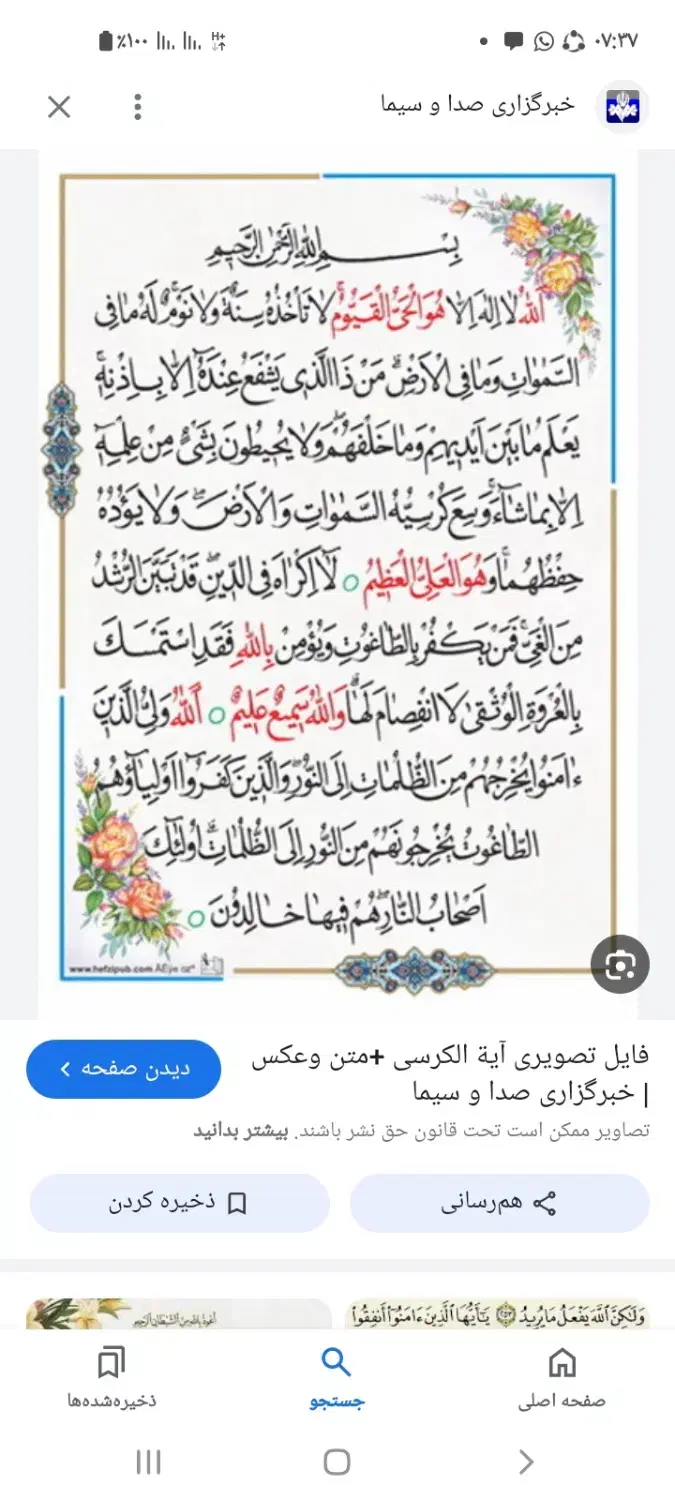 ۰۷:۳۷
٪۱۰۰
H+
خبرگزاری صدا و سیما
بِسْمِ اللهِ الرَّحْمٰنِ الرَّحِیمِ
اَللهُ لا اِلٰهَ اِلّا هُوَ الْحَیُّ الْقَیُّومُ لا تَأْخُذُهُ سِنَةٌ وَلا نَوْمٌ لَهُ ما فِی
السَّمٰواتِ وَما فِی الْاَرْضِ مَنْ ذَا الَّذی یَشْفَعُ عِنْدَهُ اِلّا بِاِذْنِهِ
یَعْلَمُ ما بَیْنَ اَیْدیهِمْ وَما خَلْفَهُمْ وَلا یُحیطُونَ بِشَیْءٍ مِنْ عِلْمِهِ
اِلّا بِما شاءَ وَسِعَ کُرْسِیُّهُ السَّمٰواتِ وَالْاَرْضَ وَلا یَؤُدُهُ
حِفْظُهُما وَهُوَ الْعَلِیُّ الْعَظیمُ ○ لا اِکْراهَ فِی الدّینِ قَدْ تَبَیَّنَ الرُّشْدُ
مِنَ الْغَیِّ فَمَنْ یَکْفُرْ بِالطّاغُوتِ وَیُؤْمِنْ بِاللهِ فَقَدِ اسْتَمْسَکَ
بِالْعُرْوَةِ الْوُثْقیٰ لَا انْفِصامَ لَها وَاللهُ سَمیعٌ عَلیمٌ ○ اَللهُ وَلِیُّ الَّذینَ
ءامَنُوا یُخْرِجُهُمْ مِنَ الظُّلُماتِ اِلَی النُّورِ وَالَّذینَ کَفَرُوا اَوْلِیاؤُهُمُ
الطّاغُوتُ یُخْرِجُونَهُمْ مِنَ النُّورِ اِلَی الظُّلُماتِ اُولٰئِکَ
اَصْحابُ النّارِ هُمْ فیها خالِدُونَ ○
www.hefzipub.com
فایل تصویری آیة الکرسی +متن وعکس
| خبرگزاری صدا و سیما
دیدن صفحه
تصاویر ممکن است تحت قانون حق نشر باشند. بیشتر بدانید
هم‌رسانی
ذخیره کردن
وَلَٰكِنَّ ٱللَّهَ يَفْعَلُ مَا يُرِيدُ ٢٥٣ يَٰٓأَيُّهَا ٱلَّذِينَ ءَامَنُوٓاْ أَنفِقُواْ
أعوذ بالله من الشیطان الرجیم
صفحه اصلی
جستجو
ذخیره‌شده‌ها